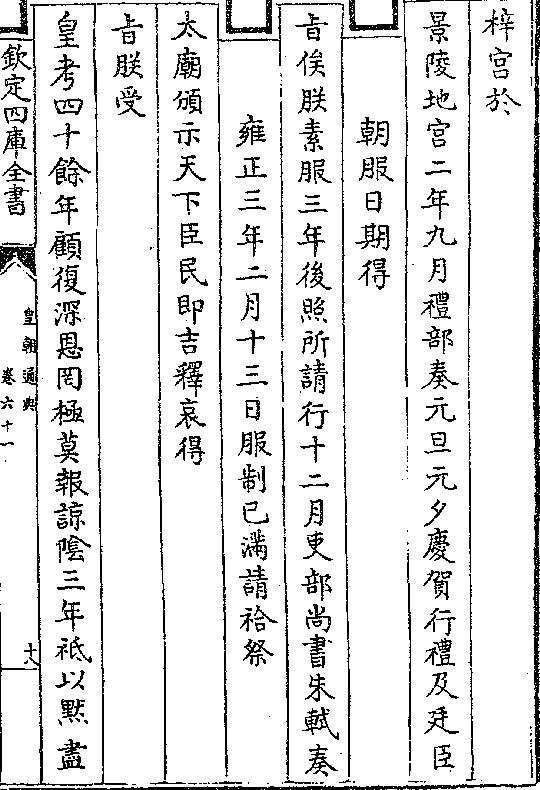 梓宫於
景陵地宫二年九月禮部奏元旦元夕慶賀行禮及廷臣
朝服日期得
旨俟朕素服三年後照所請行十二月吏部尚書朱軾奏
雍正三年二月十三日服制已滿請祫祭
太廟頒示天下臣民即吉釋哀得
旨朕受
皇考四十餘年顧復深恩罔極莫報諒陰三年祗以黙盡
欽定四庫全書
皇朝通典
卷六十一
十八